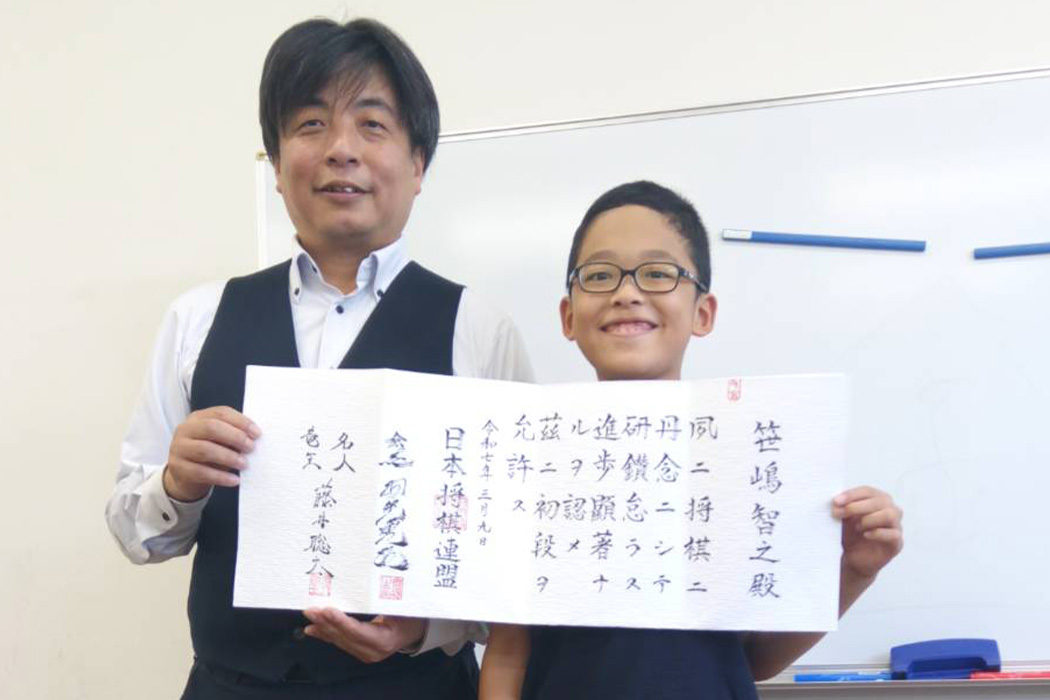 笹嶋智之殿
夙ニ将棋ニ
丹念ニシテ
研鑽怠ラス
進歩顕著ナ
ルヲ認メ
茲ニ初段ヲ
允許ス
令和七年三月九日
日本将棋連盟
名人
竜王 藤井聡太